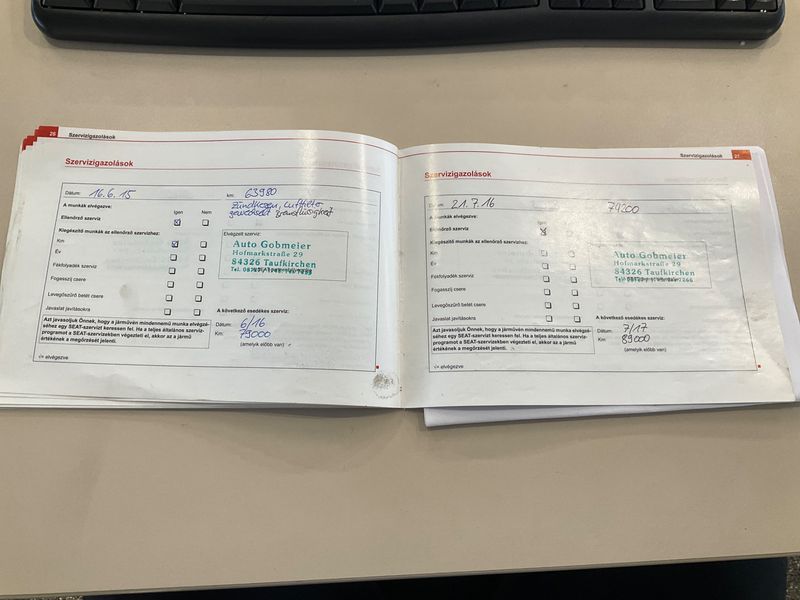 26 Szervizigazolások
Szervizigazolások
Dátum: 16.6.15 km: 63980
A munkák elvégezve:
Igen Nem
Zündkerzen, Luftfilter
gewechselt Bremsflüssigkeit
Ellenőrző szerviz
Kiegészítő munkák az ellenőrző szervizhez:
Elvégzett szerviz:
Km
Év
Fékfolyadék szerviz
Fogasszíj csere
Levegőszűrő betét csere
Javaslat javításokra
Auto Gobmeier
Hofmarkstraße 29
84326 Taufkirchen
A következő esedékes szerviz:
Dátum: 6/16
Km: 79000
(amelyik előbb van)
Azt javasoljuk Önnek, hogy a járművén mindennemű munka elvégzé-
séhez egy SEAT-szervizt keressen fel. Ha a teljes általános szerviz-
programot a SEAT-szervizekben végezteti el, akkor az a jármű
értékének a megőrzését jelenti.
√= elvégezve
Szervizigazolások 27
Szervizigazolások
Dátum: 21.7.16 79200
A munkák elvégezve:
Igen
Ellenőrző szerviz
Kiegészítő munkák az ellenőrző szervizhez:
Km
Év
Fékfolyadék szerviz
Fogasszíj csere
Levegőszűrő betét csere
Javaslat javításokra
Auto Gobmeier
Hofmarkstraße 29
84326 Taufkirchen
A következő esedékes szerviz:
Dátum: 7/17
Km 89000
(amelyik előbb van)
Azt javasoljuk Önnek, hogy a járművén mindennemű munka elvégzé-
séhez egy SEAT-szervizt keressen fel. Ha a teljes általános szerviz-
programot a SEAT-szervizekben végezteti el, akkor az a jármű
értékének a megőrzését jelenti.
√= elvégezve